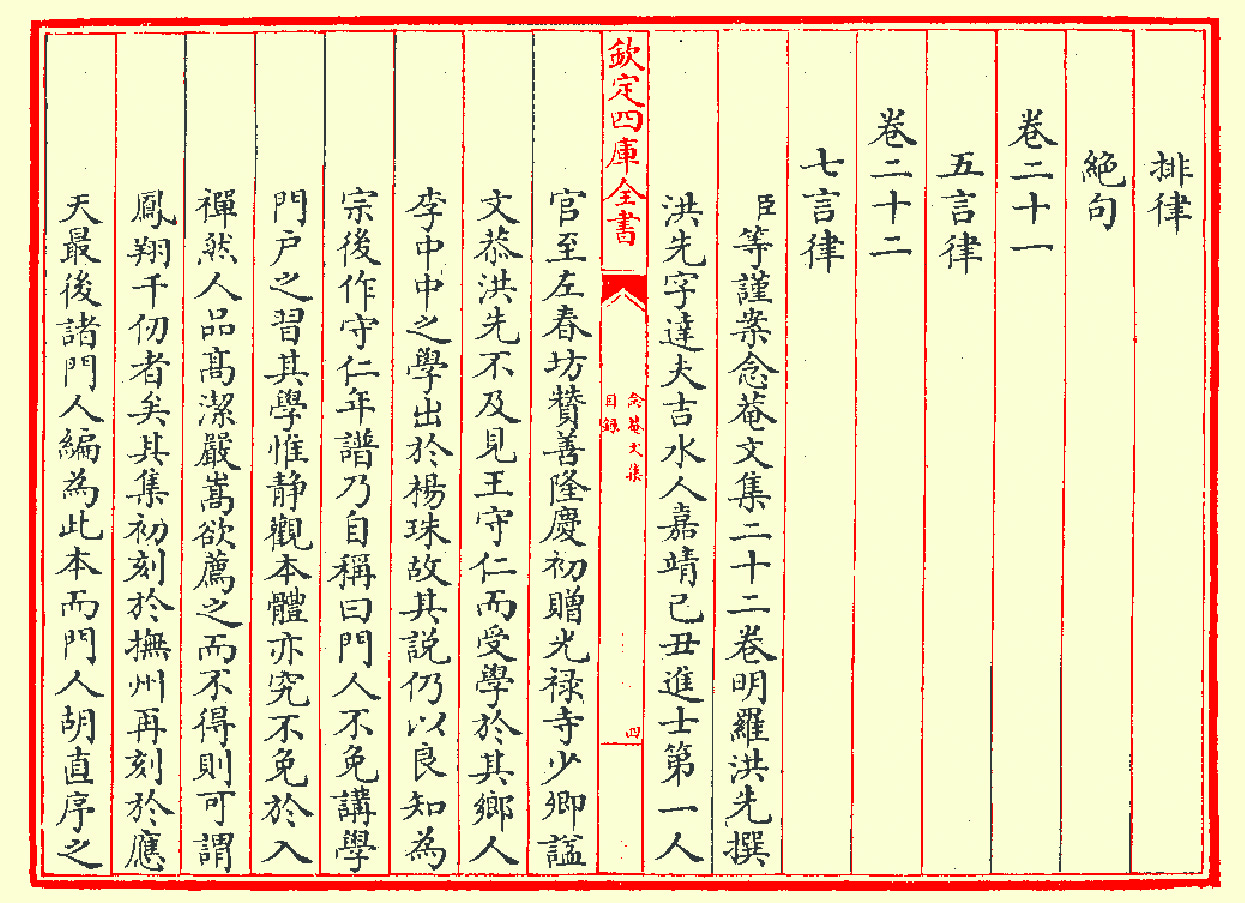 排律
絶句
卷二十一
五言律
卷二十二
七言律
臣等謹案念菴文集二十二卷明羅洪先撰
洪先字達夫吉水人嘉靖己丑進士第一人
欽定四庫全書
念菴文集
目錄
四
官至左春坊贊善隆慶初贈光禄寺少卿諡
文恭洪先不及見王守仁而受學於其鄉人
李中中之學出於楊珠故其説仍以良知為
宗後作守仁年譜乃自稱曰門人不免講學
門户之習其學惟静觀本體亦究不免於入
禪然人品高潔嚴嵩欲薦之而不得則可謂
鳳翔千仞者矣其集初刻於撫州再刻於應
天最後諸門人編為此本而門人胡直序之